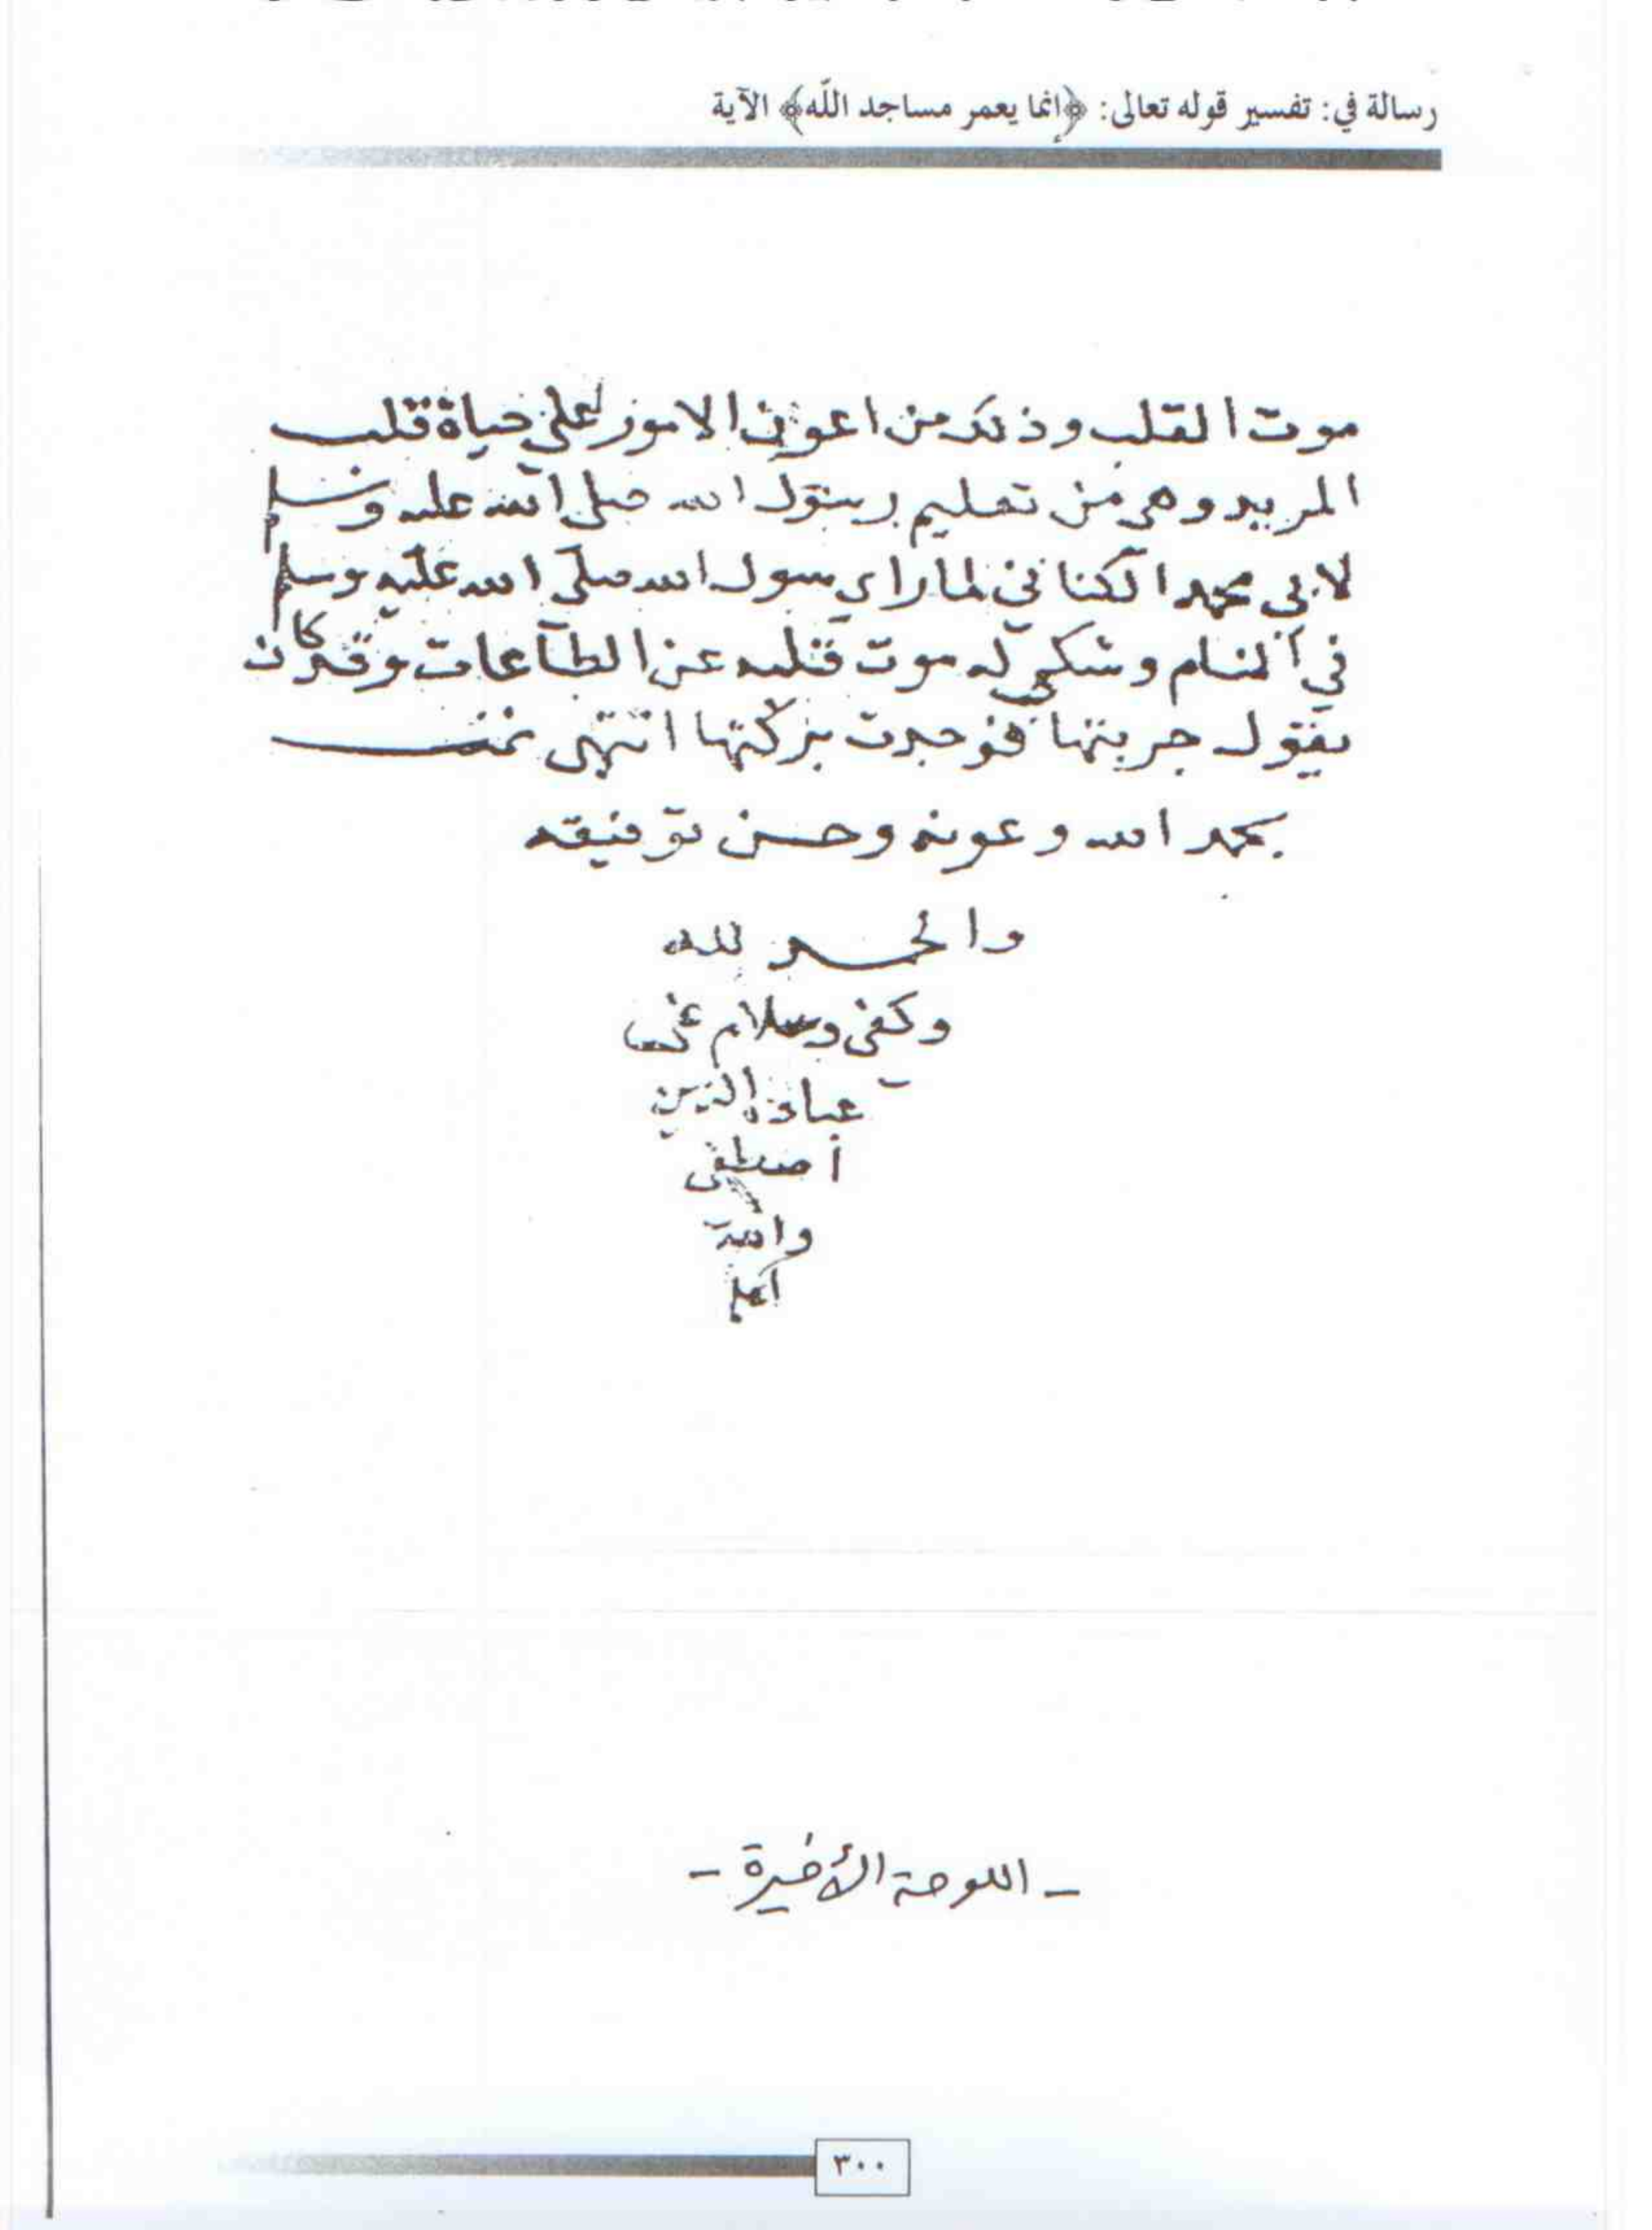 رسالة في: تفسير قوله تعالى: ﴿إنما يعمر مساجد اللّه﴾ الآية
موت القلب وذلك من اعون الامور على حياة قلب
المريد وهي من تعليم رسول الله صلى الله عليه وسلم
لابي محمد الكناني لما راي رسول الله صلى الله عليه وسلم
في المنام وشكى له موت قلبه عن الطاعات وقد كان
يقول جربتها فوجدت بركتها انتهى تمت
بحمد الله وعونه وحسن توفيقه
والحمد لله
وكفى وسلام على
عباده الذين
اصطفى
والله
اعلم
- اللوحة الأخيرة -
٣٠٠